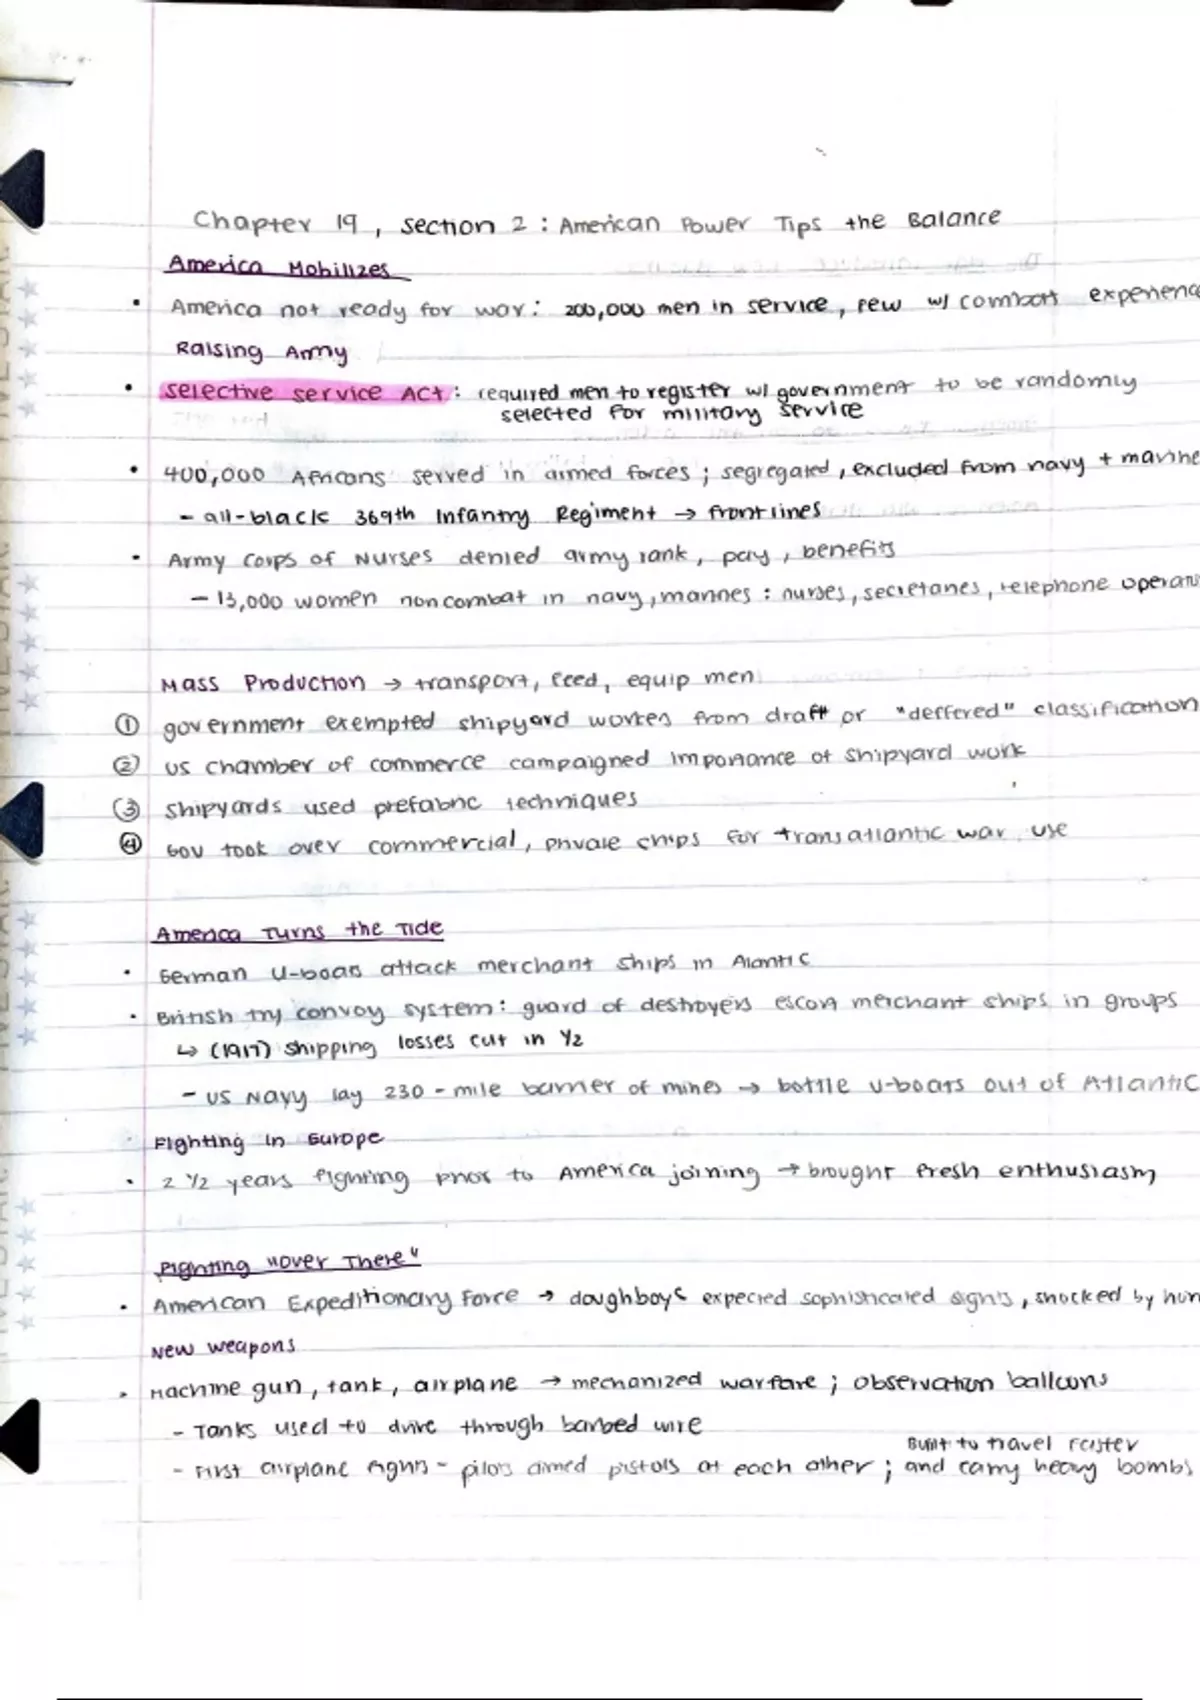 Chapter 19, Section 2: American Power Tips the Balance
America Mobilizes
• America not ready for war: 200,000 men in service, few w/ combat experience
Raising Army
• Selective Service Act: required men to register w/ government to be randomly
selected for military service
• 400,000 Africans served in armed forces; segregated, excluded from navy + marine
- all-black 369th Infantry Regiment → frontlines
• Army Corps of Nurses denied army rank, pay, benefits
- 13,000 women noncombat in navy, marines: nurses, secretaries, telephone operat
Mass Production → transport, feed, equip men
① government exempted shipyard workes from draft or "deffered" classification
② US Chamber of commerce campaigned importance of shipyard work
③ Shipyards used prefabric techniques
④ Gov took over commercial, private ships for transatlantic war use
America Turns the Tide
• German U-boats attack merchant ships in Alantic
• British try convoy system: guard of destroyers escort merchant ships in groups
↳ (1917) shipping losses cut in 1/2
- US Navy lay 230-mile barrier of mines → bottle U-boats out of Atlantic
Fighting in Europe
• 2 1/2 years fighting prior to America joining → brought fresh enthusiasm
Fighting "Over There"
• American Expeditionary Force → doughboys expected sophisticated sights, shocked by
New Weapons
• Machine gun, tank, airplane → mechanized warfare; observation balloons
- Tanks used to drive through barbed wire
Built to travel faster
- First airplane fights - pilots aimed pistols at each other; and carry heavy bombs